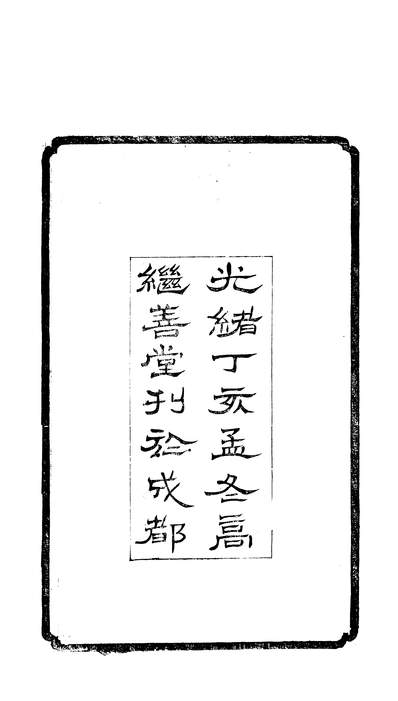 光緒丁亥孟冬高
繼善堂刊於成都